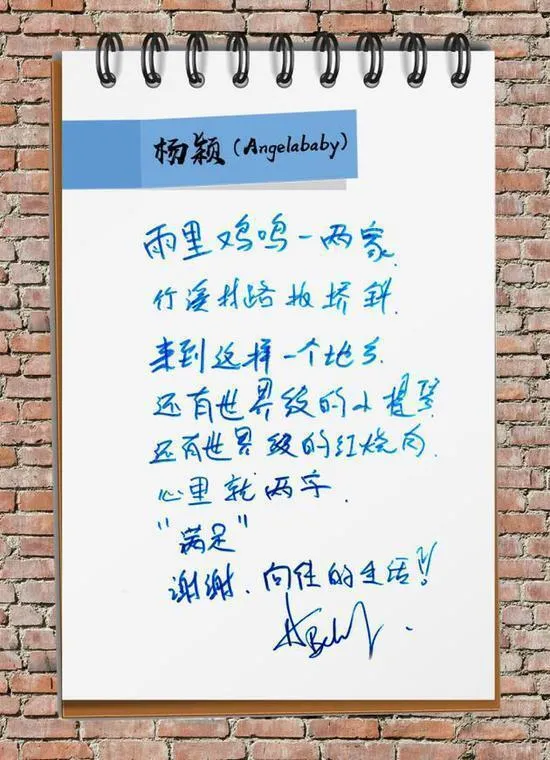 杨颖（Angelababy）
雨里鸡鸣一两家
竹溪村路板桥斜
来到这样一个地方
还有世界级的小提琴
还有世界级的红烧肉
心里就两字
"满足"
谢谢.向往的生活!!